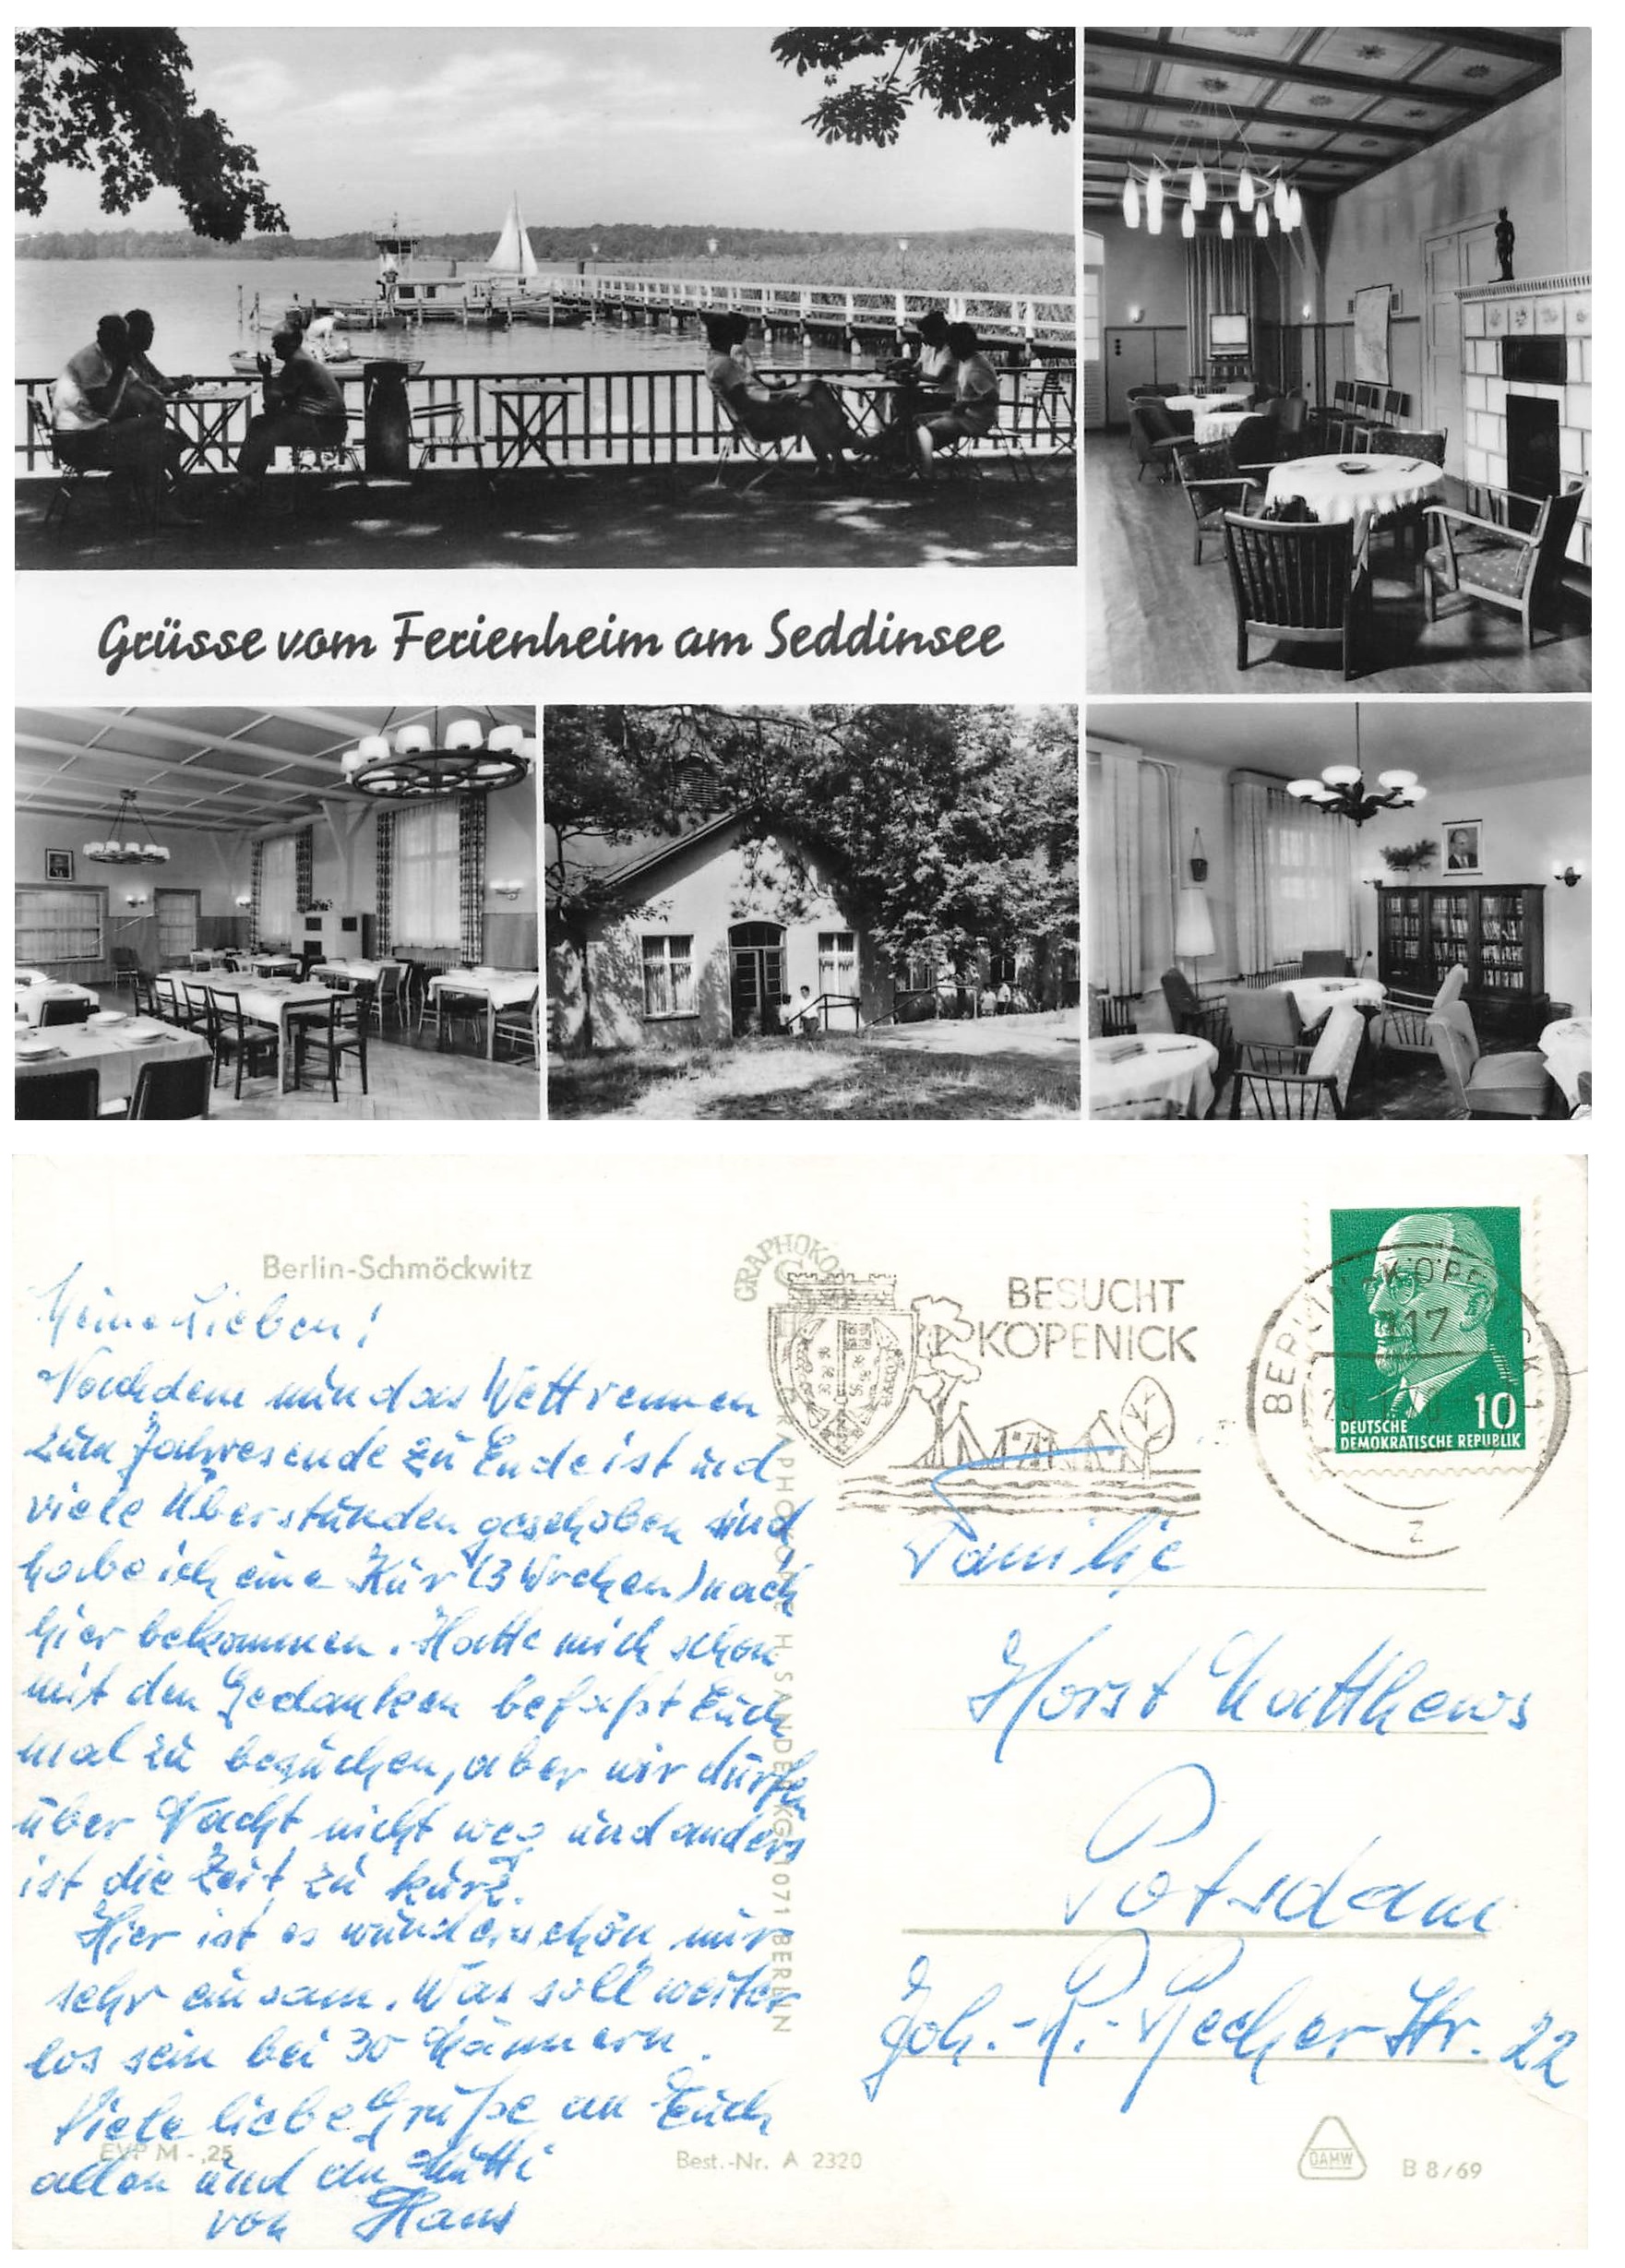 Grüsse vom Ferienheim am Seddinsee
Berlin-Schmöckwitz
Meine Lieben!
Nachdem nun das Wettrennen
zum Jahresende zu Ende ist und
viele Überstunden geschoben sind
habe ich eine Kur (3 Wochen) nach
hier bekommen. Hatte mich schon
mit den Gedanken befaßt Euch
mal zu besuchen, aber wir dürfen
über Nacht nicht weg und anders
ist die Zeit zu kurz.
Hier ist es wunderschön nur
sehr einsam. Was soll weiter
los sein bei 30 Männern.
Viele liebe Grüße an Euch
allen und an Mutti
von Hans
EVP M -,25
GRAPHOKOPIE H. SANDER KG 1071 BERLIN
Best.-Nr. A 2320
BESUCHT
KÖPENICK
BERLIN-KÖPENICK 1
117
z
10
DEUTSCHE
DEMOKRATISCHE REPUBLIK
Familie
Horst Matthews
Potsdam
Joh.-R.-Becher Str. 22
DAMW
B 8/69